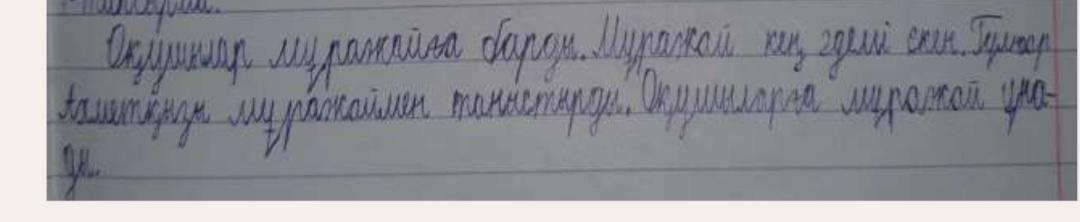 Оқушылар мұражайға барды. Мұражай кең әдемі екен. Гүлжар
Ахметқызы мұражаймен таныстырды. Оқушыларға мұражай ұна-
ды.